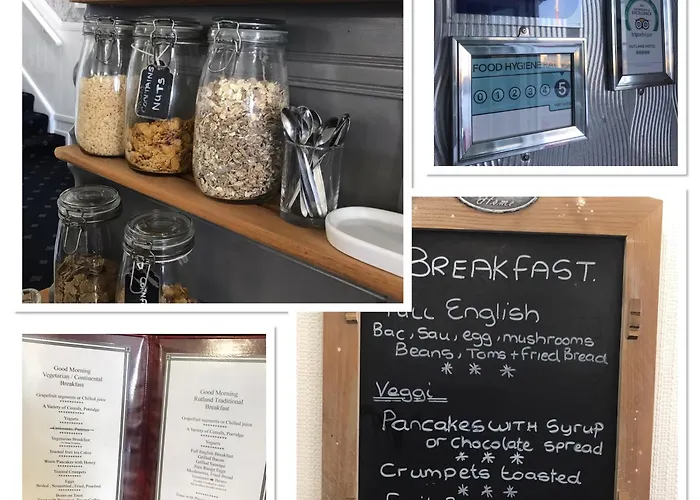 CONTAINS
NUTS
FOOD HYGIENE
0 1 2 3 4 5
tripadvisor
RUTLAND HOTEL
Home
BREAKFAST.
Full English
Bac, Sau, egg, mushrooms
Beans, Toms + Fried Bread
* * *
Veggi
Pancakes with Syrup
or chocolate spread
* * *
Crumpets toasted
* * *
Good Morning
Vegetarian / Continental
Breakfast
Grapefruit segments or chilled juice
A Variety of Cereals, Porridge
Yogurts
Vegetarian Breakfast
Toasted Fruit Tea Cakes
Warm Pancakes with Honey
Toasted Crumpets
Eggs
Boiled , Scrambled , Fried, Poached
Beans on Toast
Good Morning
Rutland Traditional
Breakfast
Grapefruit segments or chilled juice
A Variety of Cereals, Porridge
Yogurts
Full English Breakfast
Grilled Bacon
Grilled Sausage
Free Range Eggs